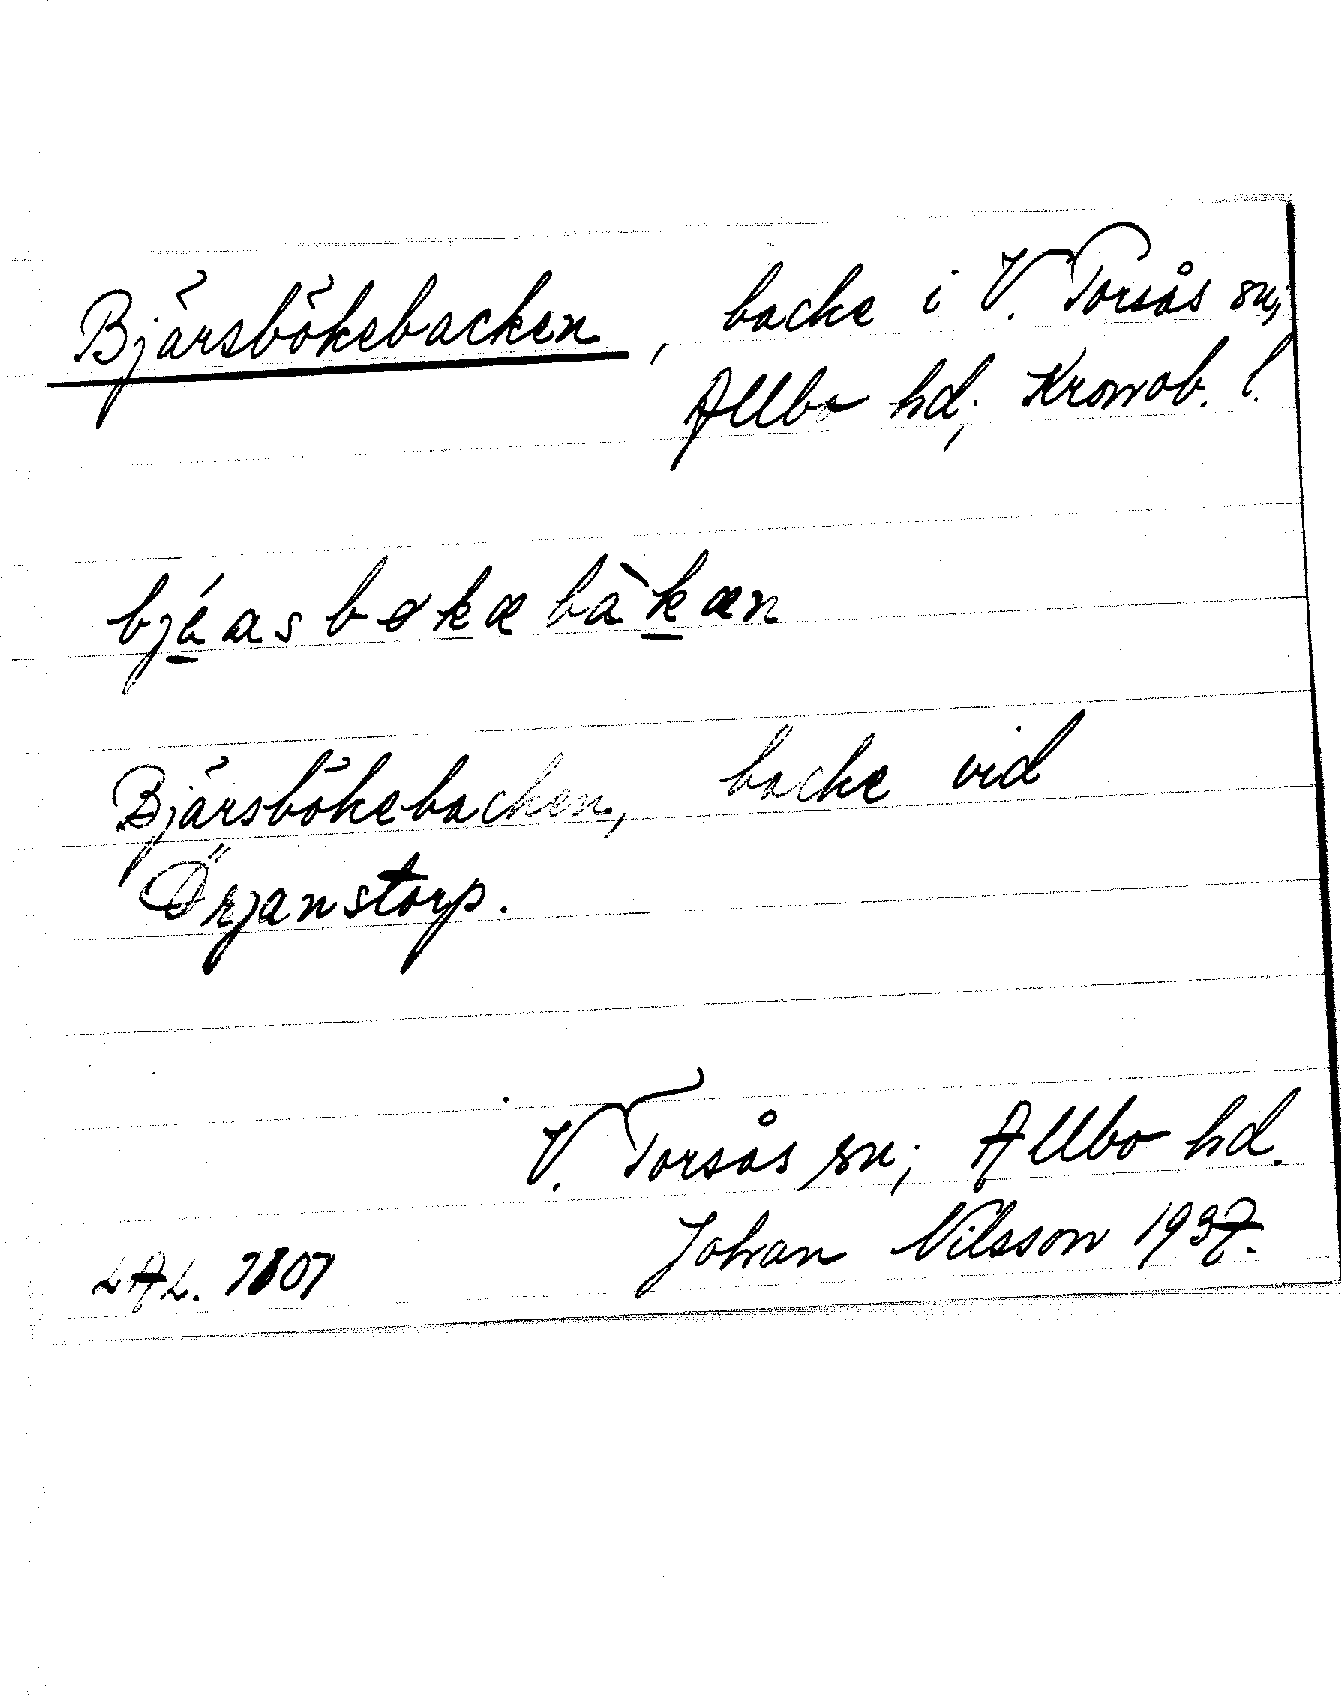 Bjärsbökebacken, backe i V. Torsås sn,
Allbo hd, Kronob. l.
bjéasbøkæbàkæn
Bjärsbökebacken, backe vid
Örjanstorp.
V. Torsås sn, Allbo hd.
Johan Nilsson 1937.
LAL.